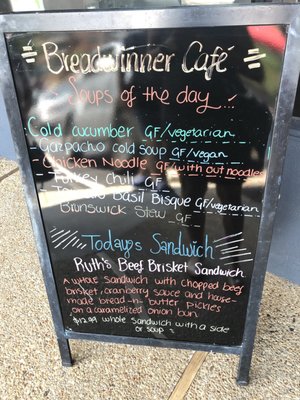 Breadwinner Café
Soups of the day
Cold cucumber GF/vegetarian
Gazpacho cold soup GF/vegan
- Chicken Noodle GF/with out noodles
Turkey Chili GF
Tomato Basil Bisque GF/vegetarian
Brunswick Stew GF
Todays Sandwich
Ruth's Beef Brisket Sandwich
A whole sandwich with chopped beef
brisket, cranberry sauce and house-
made bread-n-butter pickles
on a caramelized onion bun
$12.99 whole sandwich with a side
or soup